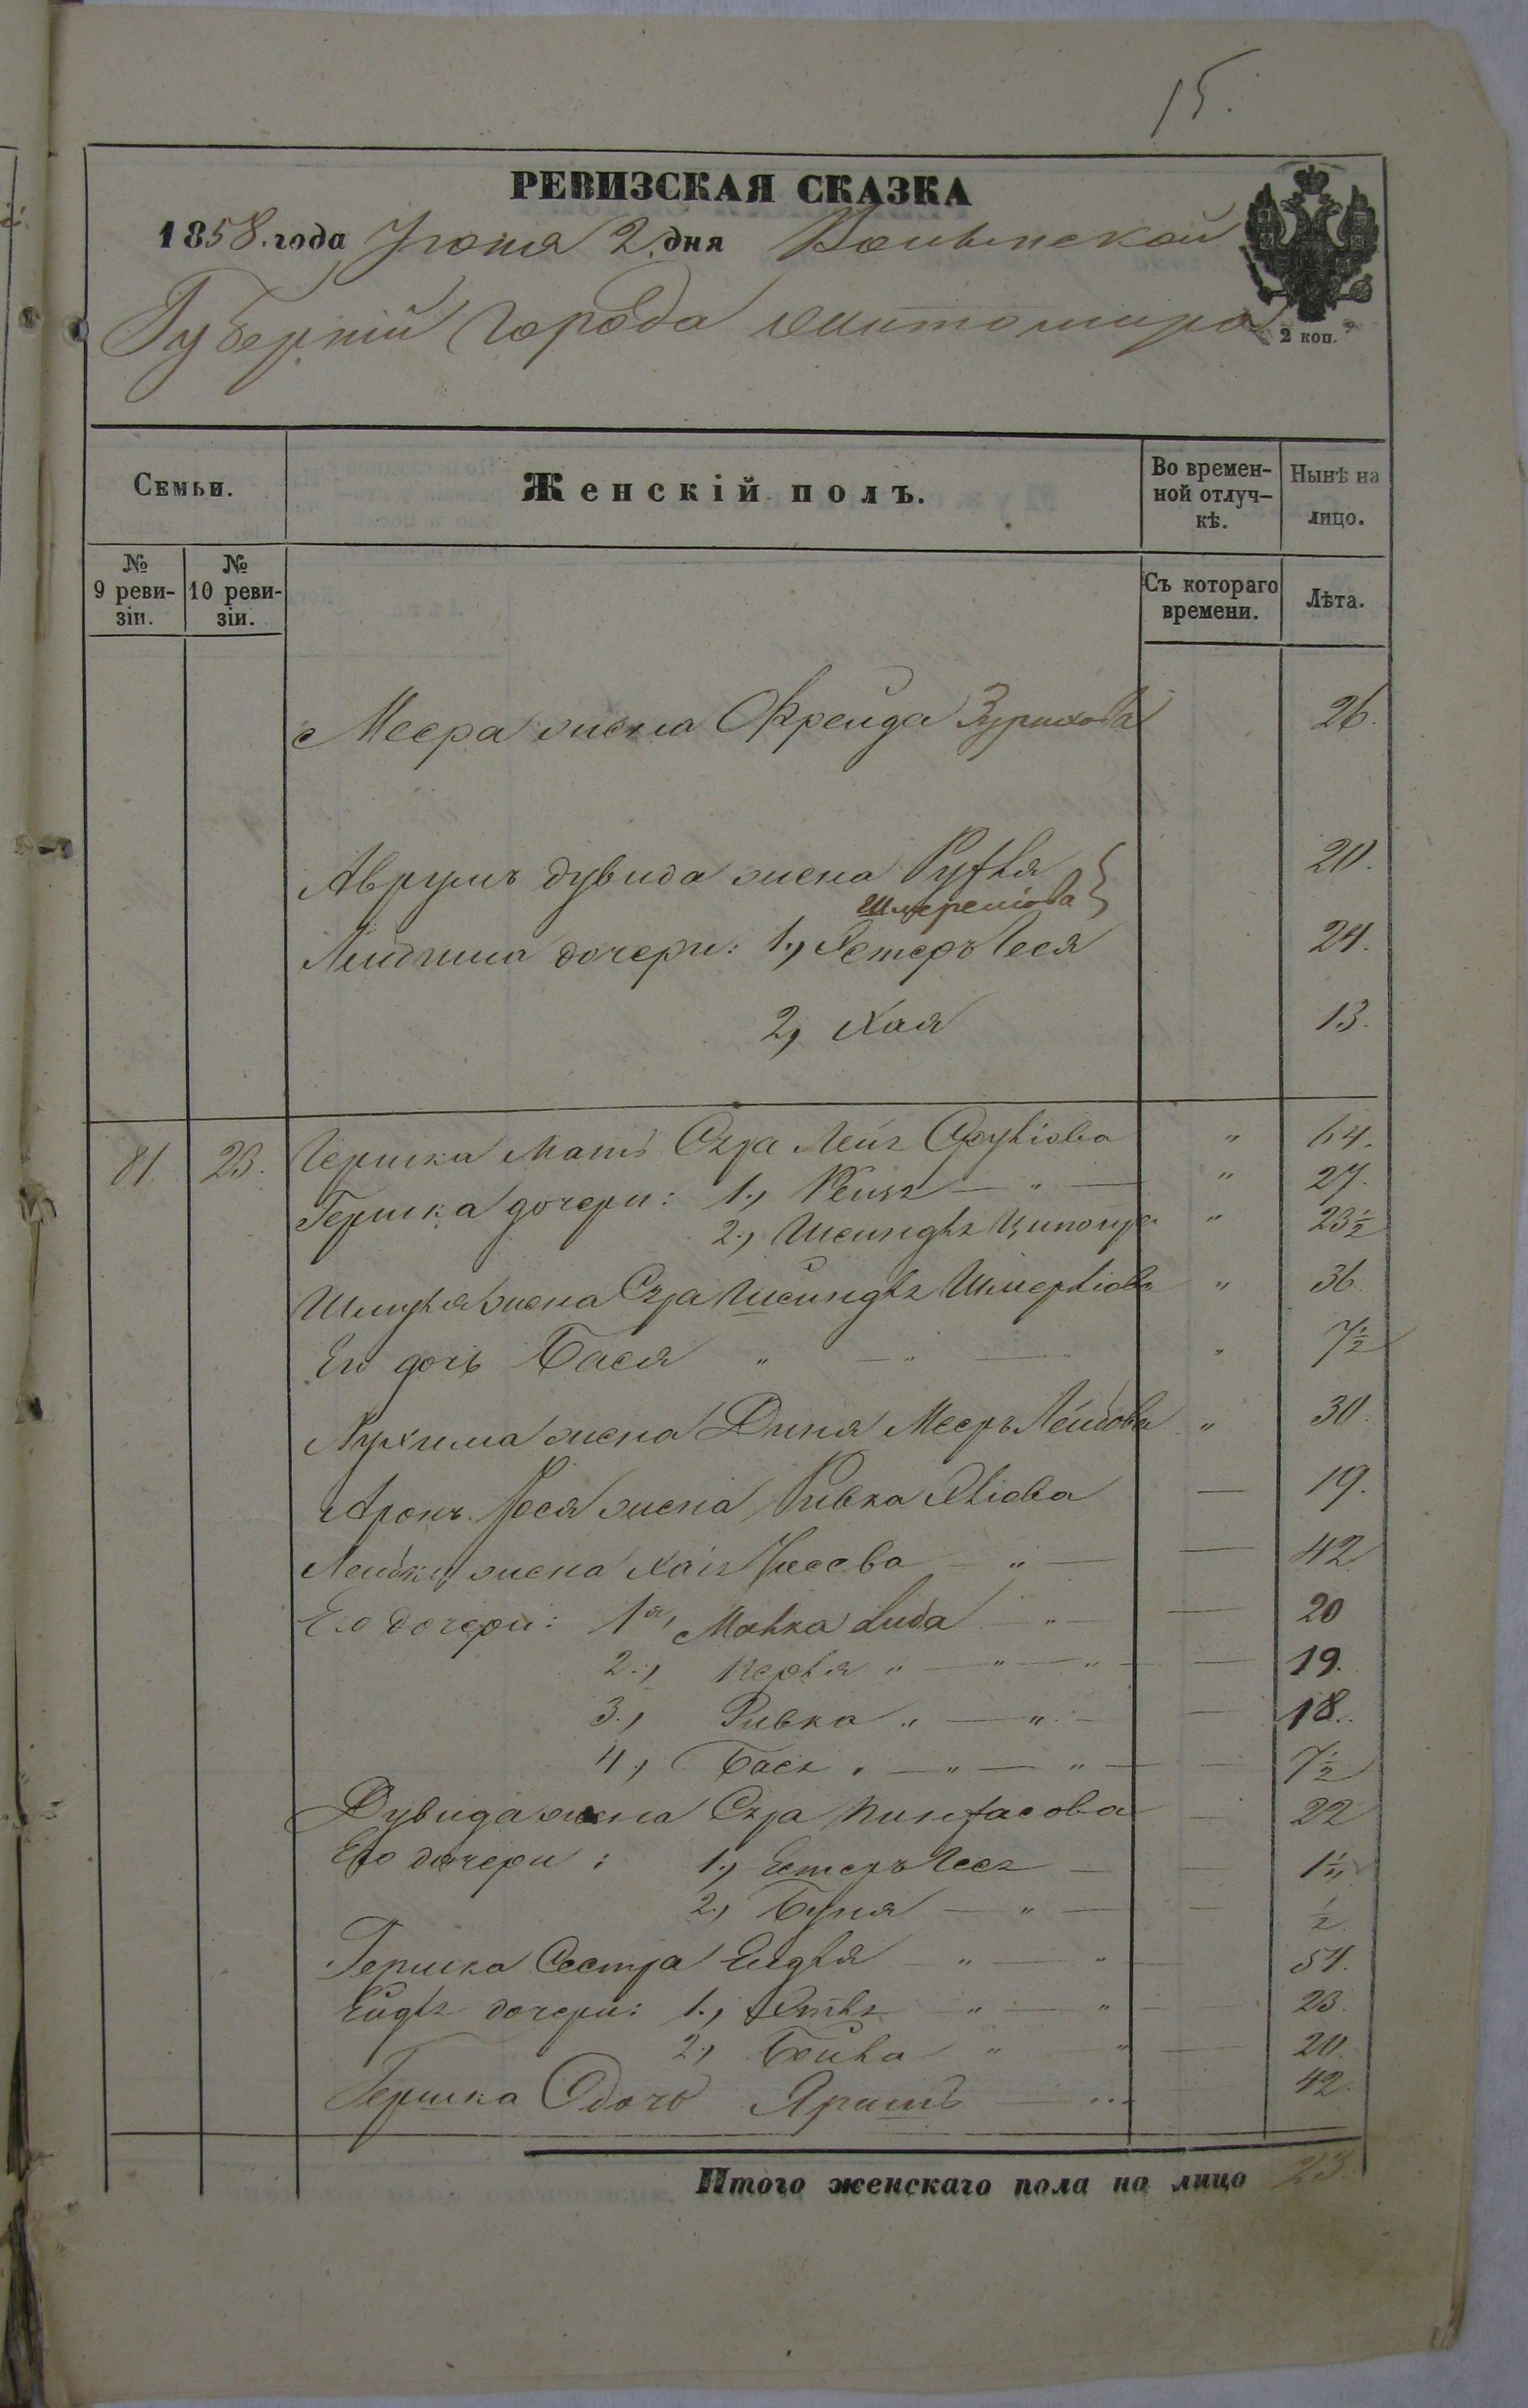 15.
РЕВИЗСКАЯ СКАЗКА
1858. года Іюня 2 дня Волынской
Губерніи Города Житомира
2 коп.
Семьи. Женскій полъ. Во времен-ной отлуч-кѣ. Нынѣ на лицо.
№ 9 реви-зіи. № 10 реви-зіи. Съ котораго времени. Лѣта.
Меера жена Фрейда 26.
Аврумъ Дувида жена Руфля 20.
дочери: 1., Естеръ Лея 24.
2, Хая 13.
81. 23. Гершка Мать Сура Лея " 64.
Гершка дочери: 1., Рейзя — " — " 27.
2., Шейндля Ципойра " 23½
Шмуля жена Сура Шейндля Шмерліова " 36.
Его дочь Бася " — " — " 7½
Нухима жена Диня Мееръ Лейбова " 30.
Аронъ Іося жена Ривка — 19.
жена Хая Іосева — " — — 42
Его дочери: 1я, Малка Либа — " — — 20
2., Перля " — " — " — — 19.
3., Ривка " — " — — 18.
4., Бася " — " — " — — 7½
Дувида жена Сура Пинхасова — 22
Его дочери: 1., Естеръ Лея — —
2., Буня — " — — ½
Гершка Сестра Ейдля — " — " — 51.
Ейдля дочери: 1., — " — " — 23.
2, Бейла " " — 20.
Гершка дочь — 42.
Итого женскаго пола на лицо 23.